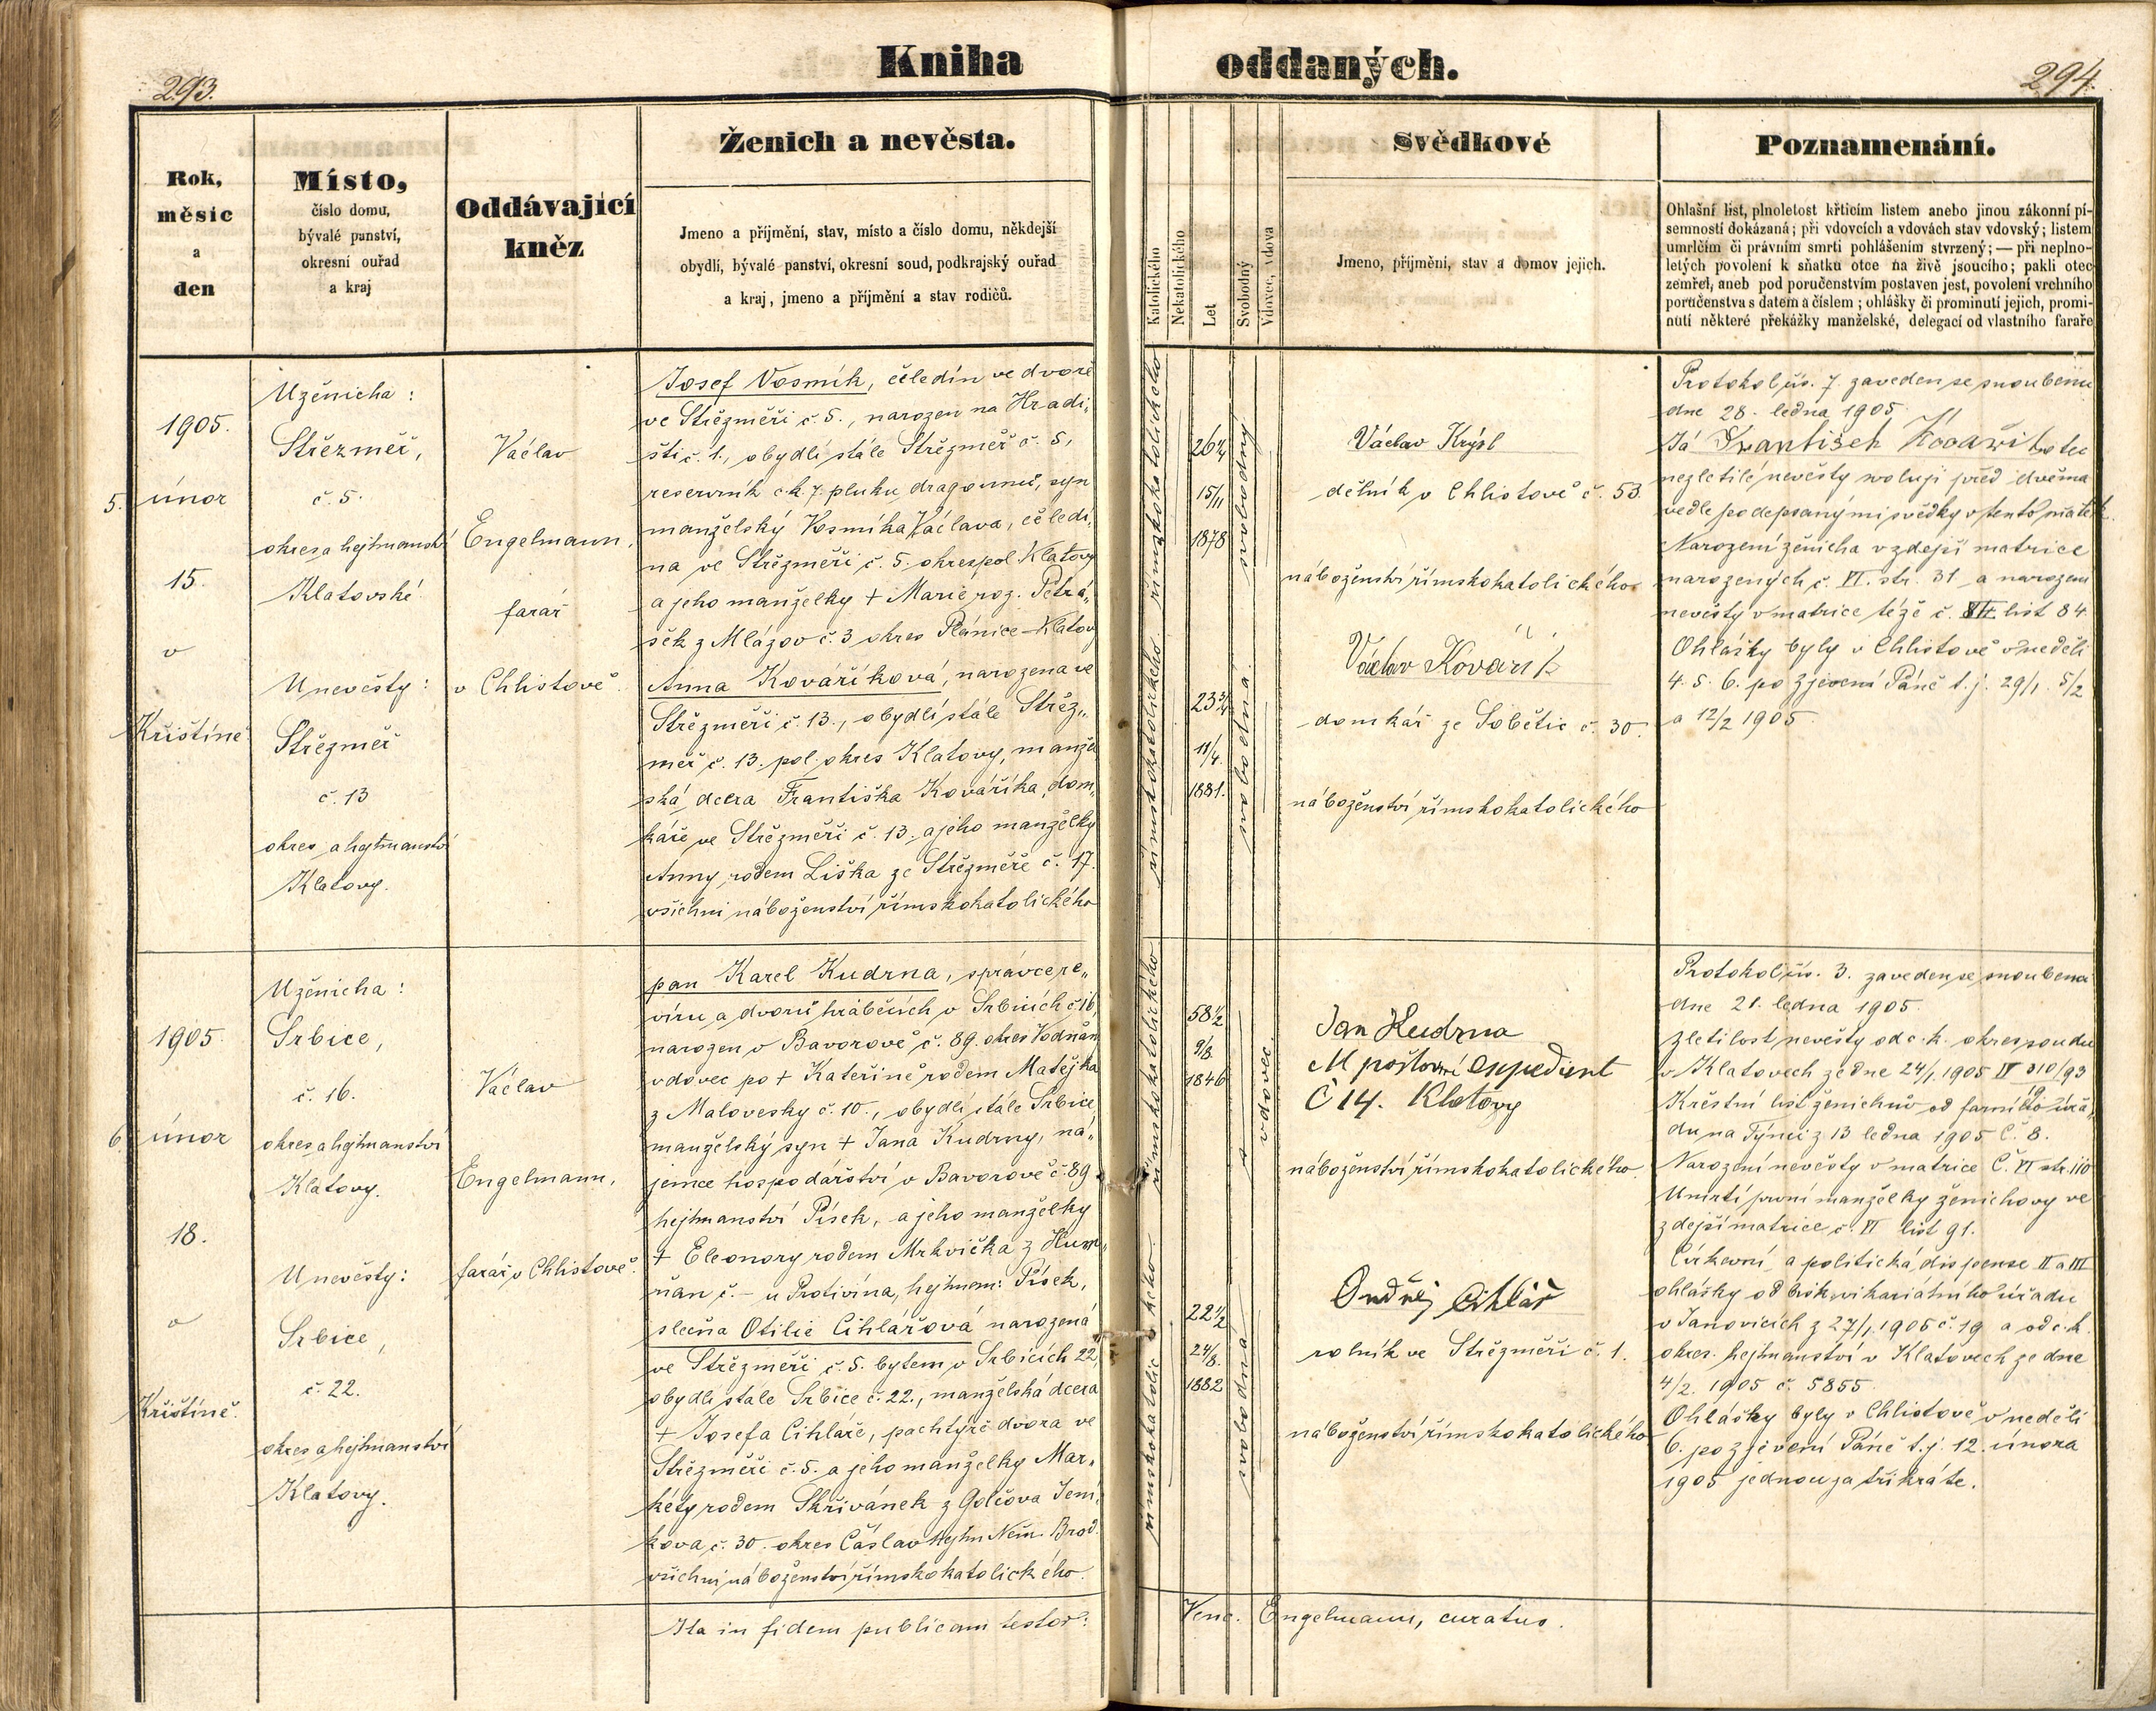 293.
Kniha oddaných.
294.
Rok,
měsíc
a
den
Místo,
číslo domu,
bývalé panství,
okresní ouřad
a kraj
Oddávající
kněz
Ženich a nevěsta.
Jmeno a příjmění, stav, místo a číslo domu, někdejší
obydlí, bývalé panství, okresní soud, podkrajský ouřad
a kraj, jmeno a příjmění a stav rodičů.
Katolického
Nekatolického
Let
Svobodný
Vdovec, vdova
Svědkové
Jmeno, příjmění, stav a domov jejich.
Poznamenání.
Ohlašní list, plnoletost křticím listem anebo jinou zákonní pí-
semností dokázaná; při vdovcích a vdovách stav vdovský; listem
umrlčím či právním smrti pohlášením stvrzený; — při neplno-
letých povolení k sňatku otce na živě jsoucího; pakli otec
zemřel, aneb pod poručenstvím postaven jest, povolení vrchního
poručenstva s datem a číslem; ohlášky či prominutí jejich, promi-
nutí některé překážky manželské, delegací od vlastního faráře
5.
1905.
únor
15.
v
Křištíně
U ženicha:
Střezměř,
č. 5.
okres a hejtmanství
Klatovské.
U nevěsty:
Střezměř
č. 13
okres a hejtmanství
Klatovy.
Václav
Engelmann,
farář
v Chlistově.
Josef Vosmík, čeledín ve dvoře
ve Střezměři č. 5., narozen na Hradi„
šti č. 1., obydlí stále Střezměř č. 5,
reservník c.k. 7. pluku dragounů, syn
manželský Vosmíka Václava, čeledí„
na ve Střezměři č. 5. okres pol. Klatovy
a jeho manželky + Marie roz. Petrá„
šek z Mlázov č. 3 okres Plánice-Klatov
Anna Kováříková, narozena ve
Střezměři č. 13., obydlí stále Střez„
měř č. 13. pol. okres Klatovy, manžel
ská dcera Františka Kováříka, dom„
káře ve Střezměři č. 13. a jeho manželky
Anny rodem Liška ze Střezměře č. 17.
všichni náboženství římskokatolického
římskokatolického
římskokatolického
26¼
15/11
1878
23¾
11/4.
1881.
svobodný
svobodná
Václav Krýsl
dělník v Chlistově č. 53.
náboženství římskokatolického
Václav Kovářík
domkář ze Sobětic č. 30.
náboženství římskokatolického
Protokol čís. 7. zaveden se snoubenci
dne 28. ledna 1905.
Já František Kovařik otec
nezletilé nevěsty svoluji před dvěma
vedle podepsanými svědky v tento sňatek.
Narození ženicha v zdejší matrice
narozených č. VI. str. 31 a narození
nevěsty v matrice téže č. list 84
Ohlášky byly v Chlistově v neděli
4. 5. 6. po Zjevení Páně t. j. 29/1. 5/2
a 12/2 1905.
6.
1905.
únor
18.
v
Křištíně.
U ženicha:
Srbice,
č. 16.
okres a hejtmanství
Klatovy.
U nevěsty:
Srbice,
č. 22.
okres a hejtmanství
Klatovy.
Václav
Engelmann,
farář v Chlistově.
pan Karel Kudrna, správce re„
víru a dvorů hraběcích v Srbicích č. 16,
narozen v Bavorově č. 89. okres Vodňan
vdovec po + Kateřině rodem Matějka
z Malovesky č. 10., obydlí stále Srbice,
manželský syn + Jana Kudrny, ná„
jemce hospodářství v Bavorově č. 89
hejtmanství Písek, a jeho manželky
+ Eleonory rodem Mrkvička z Hum„
ňan č. – u Protivína, hejtman: Písek,
slečna Otilie Cihlářová narozená
ve Střezměři č. 5. bytem v Srbicích 22,
obydlí stále Srbice č. 22., manželská dcera
+ Josefa Cihláře, pachtýře dvora ve
Střezměři č. 5. a jeho manželky Mar„
kéty rodem Skřivánek z Golčova Jení„
kova, č. 30. okres Čáslav Hejtm Něm. Brod.
všichni náboženství římskokatolického.
římskokatolického
římskokatolického
58½
9/8.
1846
22½
24/8.
1882
vdovec.
svobodná
Jan Kudrna
poštovní expedient
Č 14. Klatovy
náboženství římskokatolického.
Ondřej Cihlář
rolník ve Střezměři č. 1.
náboženství římskokatolického
Protokol čís. 3. zaveden se snoubenci
dne 21. ledna 1905.
Zletilost nevěsty od c. k. okres. soudu
v Klatovech ze dne 24/1. 1905
Křestní list ženichův od farního úřa„
du na Týnici z 13 ledna 1905 č. 8.
Narození nevěsty v matrice Č. VI str. 110
Úmrtí první manželky ženichovy ve
zdejší matrice č. VI list 91.
Církevní a politická dispense II a III
ohlášky od bisk. vikariátního úřadu
v Janovicích z 27/1. 1905 č. 19 a od c. k.
okres. hejtmanství v Klatovech ze dne
4/2. 1905 č. 5855.
Ohlášky byly v Chlistově v neděli
6. po zjevení Páně t. j. 12. února
1905 jednou za třikráte.
Ita in fidem publicam testor: Venc. Engelmann, curatus.